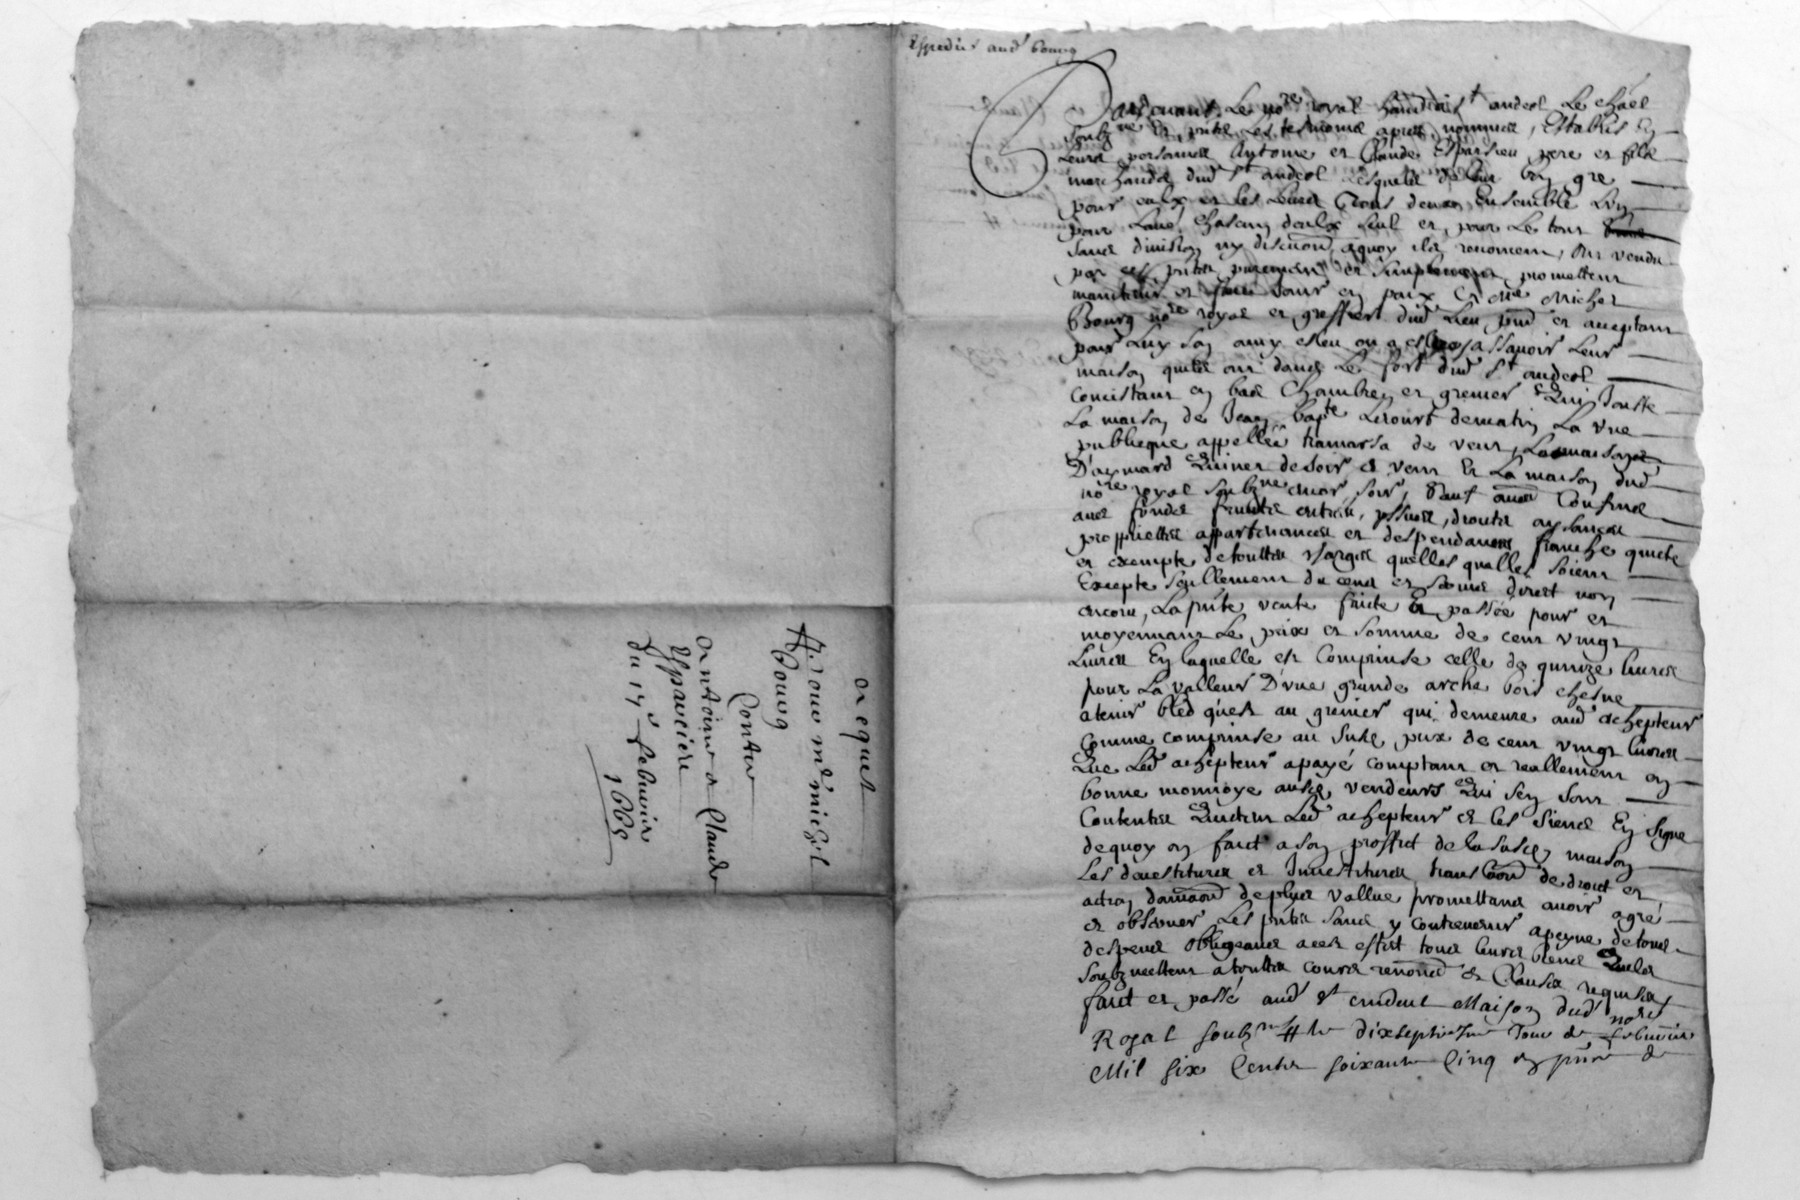 Expedié aud' bourg
Pardevant Le no.re royal St andeol Le
soubz.ne Et p.ntz Les tesmoins apres nommes, Establis En
Leurs personnes Antoine et Claude Esparsieu pere et filz
marchandz dud' St andeol Lesquelz de Leur bon gre
pour eulx et les Leurs Tous deux Ensemble L'un
pour L'autre, chascun deulx seul et pour Le tout
sans division ny discution aquoy ilz renoncent, Ont vendu
par ces p.ntes purement et simplement promettent
maintenir et faire Jouir en paix A M.re Michel
Bourg no.re royal et greffier dud' Lieu p.nt et acceptant
pour Luy son amy esleu ou a eslire assavoir Leur
maison quilz ont dans Le fort dud' St andeol
Concistant en bas Chambre et grenier Qui Jouste
La maison de Jean bap.te dematin La rue
publicque appellee de vent, La maison
D'aymard de soir et vent Et La maison dud'
no.re royal soubz.ne soir, Sauf autres Confins
avec fondz entrées, yssues, droitz aysances
propriettes appartenances et despendances franche quicte
et exempte de touttes charges quelles quelles soient
Excepte seullement du cens et directe non
encoru, La p.nte vente faicte Et passée pour et
moyennant Le prix et somme de cent vingt
Livres En laquelle est Comprinse celle de quinze livres
pour La valleur D'une grande arche bois chesne
atenir bled quest au grenier qui demeure aud' achepteur
Comme comprinse au susd. prix de cent vingt livres
Que Led' achepteur apayé comptant et reallement en
bonne monnoye ausd. vendeurs Qui sen sont
Contentes Quictent Led' achepteur et les siens En signe
dequoy on faict a son proffict de la susd. maison
Les devestitures et Investitures de droict et
action de plus vallue promettans avoir agre
et observer Les p.ntes sans y contrevenir apeyne de tous
despens obligeans acest effect tous leurs biens Quilz
soubzmettent atouttes cours renon.on et Clauses requises
faict et passé aud' St andeol Maison dud' no.re
Royal soubz.ne le dixseptiesme Jour de febvrier
Mil six Centz soixante Cinq en p.nce de
acquet
Pour m.e michel
Bourg
Contre
Antoine et Claude
Esparcieu
du 17 febvrier
1665